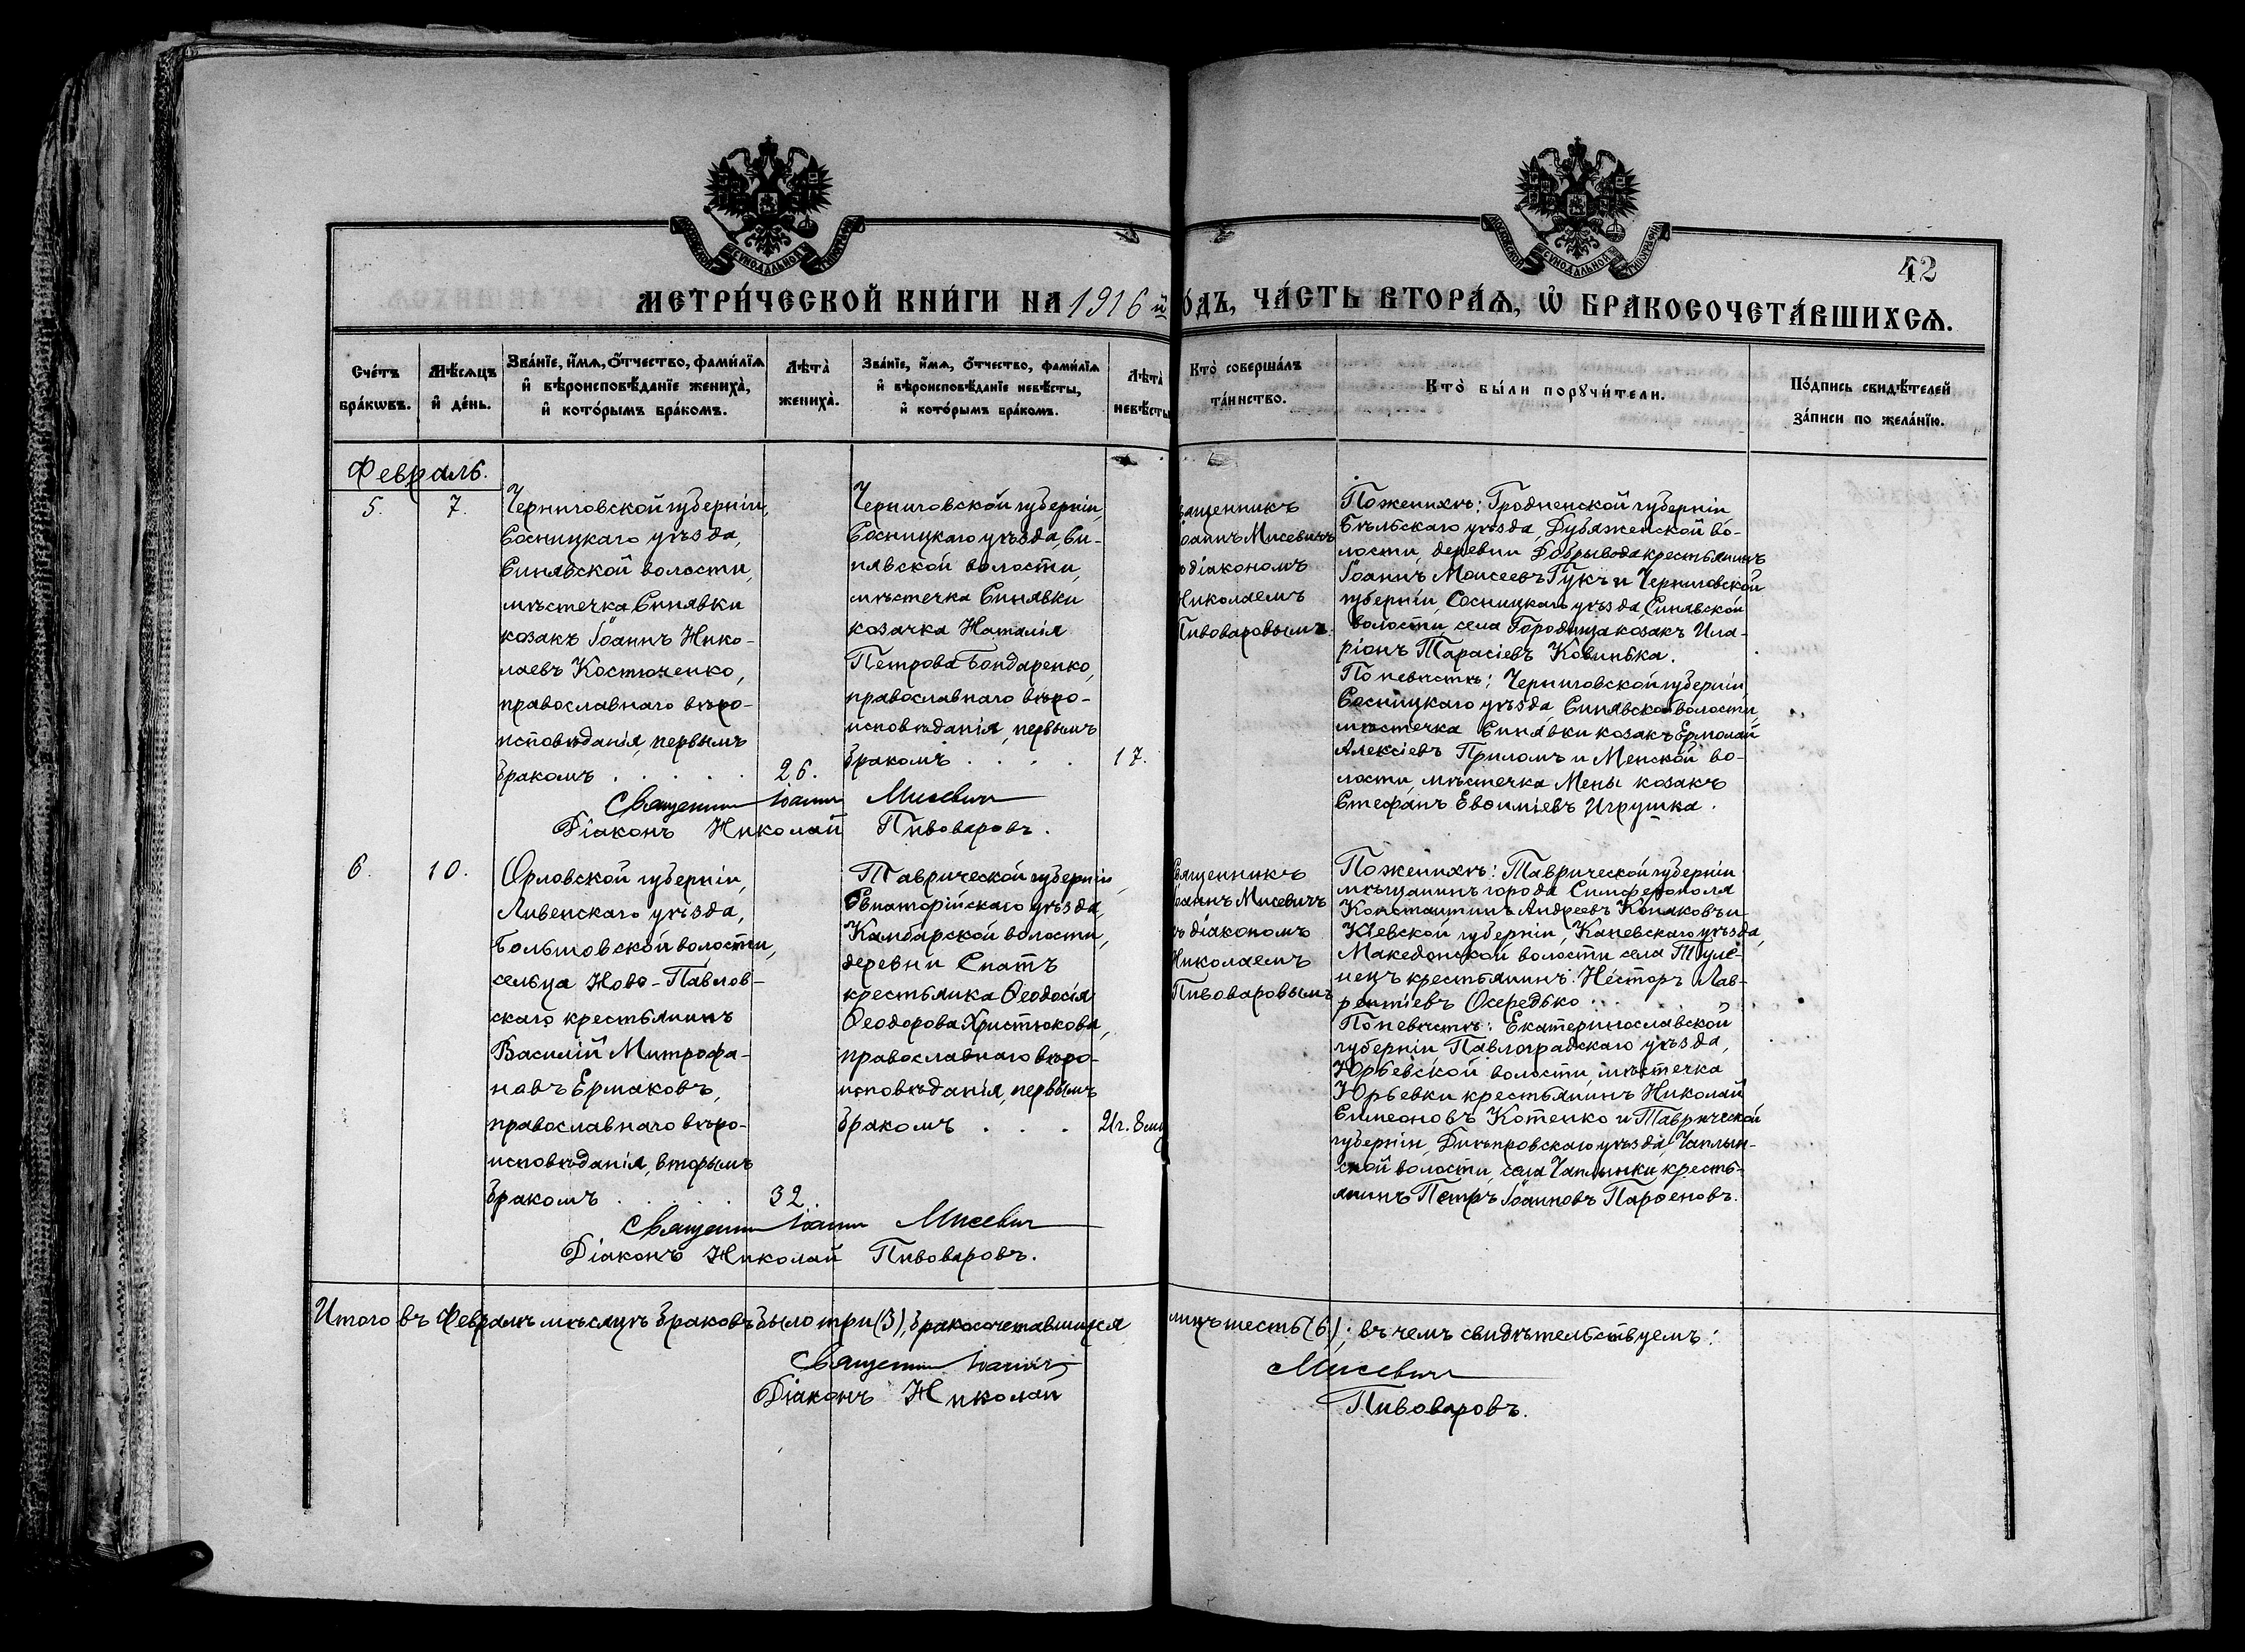 МОСКОВСКОЙ СУНОДАЛЬНОЙ ТИПОГРАФІИ
МОСКОВСКОЙ СУНОДАЛЬНОЙ ТИПОГРАФІИ
42
МЕТРИ́ЧЕСКОЙ КНИ́ГИ НА 1916 й
О́ДЪ, ЧА́СТЬ ВТОРА́Ѧ, Ѡ҆ БРАКОСОЧЕТА́ВШИХСѦ.
Сче́тъ
бра́кѡвъ.
Мѣ́сѧцъ
и҆ де́нь.
Зва́нїе, и҆́мѧ, ѻ҆́тчество, фами́лїѧ
и҆ вѣроисповѣ́данїе жениха̀,
и҆ кото́рымъ бра́комъ.
Лѣта̀
жениха̀.
Зва́нїе, и҆́мѧ, ѻ҆́тчество, фами́лїѧ
и҆ вѣроисповѣ́данїе невѣ́сты,
и҆ кото́рымъ бра́комъ.
Лѣта̀
невѣ́сты
Кто̀ соверша́лъ
та́инство.
Кто̀ бы́ли порꙋчи́тели.
По́дпись свидѣ́телей
за́писи по жела́нїю.
Февраль.
5.
7.
Черниговской губерніи,
Сосницкаго уѣзда,
Синявской волости,
мѣстечка Синявки
козакъ Іоаннъ Нико-
лаевъ Костюченко,
православнаго вѣро-
исповѣданія, первымъ
бракомъ . . . . .
26.
Черниговской губерніи,
Сосницкаго уѣзда, Си-
нявской волости,
мѣстечка Синявки
козачка Наталія
Петрова Бондаренко,
православнаго вѣро-
исповѣданія, первымъ
бракомъ . . . .
17.
Священникъ Іоаннъ Мисевичъ
Діаконъ Николай Пивоваровъ.
ященникъ
Іоаннъ Мисевичъ
ъ діакономъ
Николаемъ
Пивоваровымъ.
По женихѣ: Гродненской губерніи
Бѣльскаго уѣзда, Дубяженской во-
лости, деревни Добрывода крестьянинъ
Іоаннъ Моисеевъ Гукъ и Черниговской
губерніи, Сосницкаго уѣзда Синявской
волости, села Городища козакъ Ила-
ріонъ Тарасіевъ Ковинька.
По невѣстѣ: Черниговской губерніи,
Сосницкаго уѣзда Синявской волости,
мѣстечка Синявки козакъ Ермолай
Алексіевъ Приломъ и Менской во-
лости, мѣстечка Мены козакъ
Стефанъ Евѳиміевъ Игрушка.
6.
10.
Орловской губерніи,
Ливенскаго уѣзда,
Большовской волости,
сельца Ново-Павлов-
скаго крестьянинъ
Василій Митрофа-
новъ Ермаковъ,
православнаго вѣро-
исповѣданія, вторымъ
бракомъ . . . . .
32.
Таврической губерніи,
Евпаторійскаго уѣзда,
Камбарской волости,
деревни Спатъ
крестьянка Ѳеодосія
Ѳеодорова Христюкова,
православнаго вѣро-
исповѣданія, первымъ
бракомъ . . .
21 г. 8 мц
Священникъ Іоаннъ Мисевичъ
Діаконъ Николай Пивоваровъ.
Священникъ
Іоаннъ Мисевичъ
ъ діакономъ
Николаемъ
Пивоваровымъ
По женихѣ: Таврической губерніи
мѣщанинъ города Симферополя
Константинъ Андреевъ Конаковъ и
Кіевской губерніи, Каневскаго уѣзда,
Македонской волости села Тулѣ-
нецъ крестьянинъ Несторъ Лав-
рентіевъ Осередько . . .
По невѣстѣ: Екатеринославской
губерніи Павлоградскаго уѣзда,
Юрьевской волости, мѣстечка
Юрьевки крестьянинъ Николай
Симеоновъ Котенко и Таврической
губерніи, Днѣпровскаго уѣзда, Чаплин-
ской волости, села Чаплинки кресть-
янинъ Петръ Іоанновъ Парѳеновъ.
Итого въ Февралѣ мѣсяцѣ браковъ было три (3), бракосочетавшихся
лицъ шесть (6); въ чемъ свидѣтельствуемъ:
Священникъ Іоаннъ
Мисевичъ
Діаконъ Николай
Пивоваровъ.